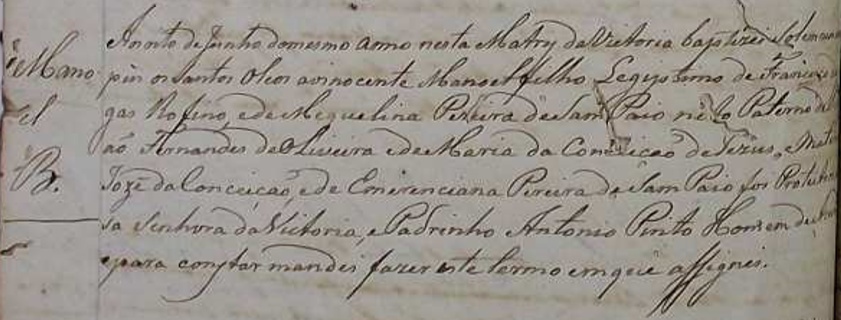 Mano
el
B.
Aos oito de Junho do mesmo anno nesta Matrz da Victoria baptizei Solem
e pus os Santos Oleos ao innocente Manoel filho Legiptimo de Francisco
gas Rofino, e de Mequelina Pereira de Sam Paio néto Paterno de
aõ Fernandes de Oliveira e de Maria da Conceiçaõ de Jezus, e Mate
Jozé da Conceicaõ, e de Emerenciana Pereira de Sam Paio foi Protetora
sa Senhora da Victoria, e Padrinho Antonio Pinto Homem de
e para constar mandei fazer este termo em que assignei.